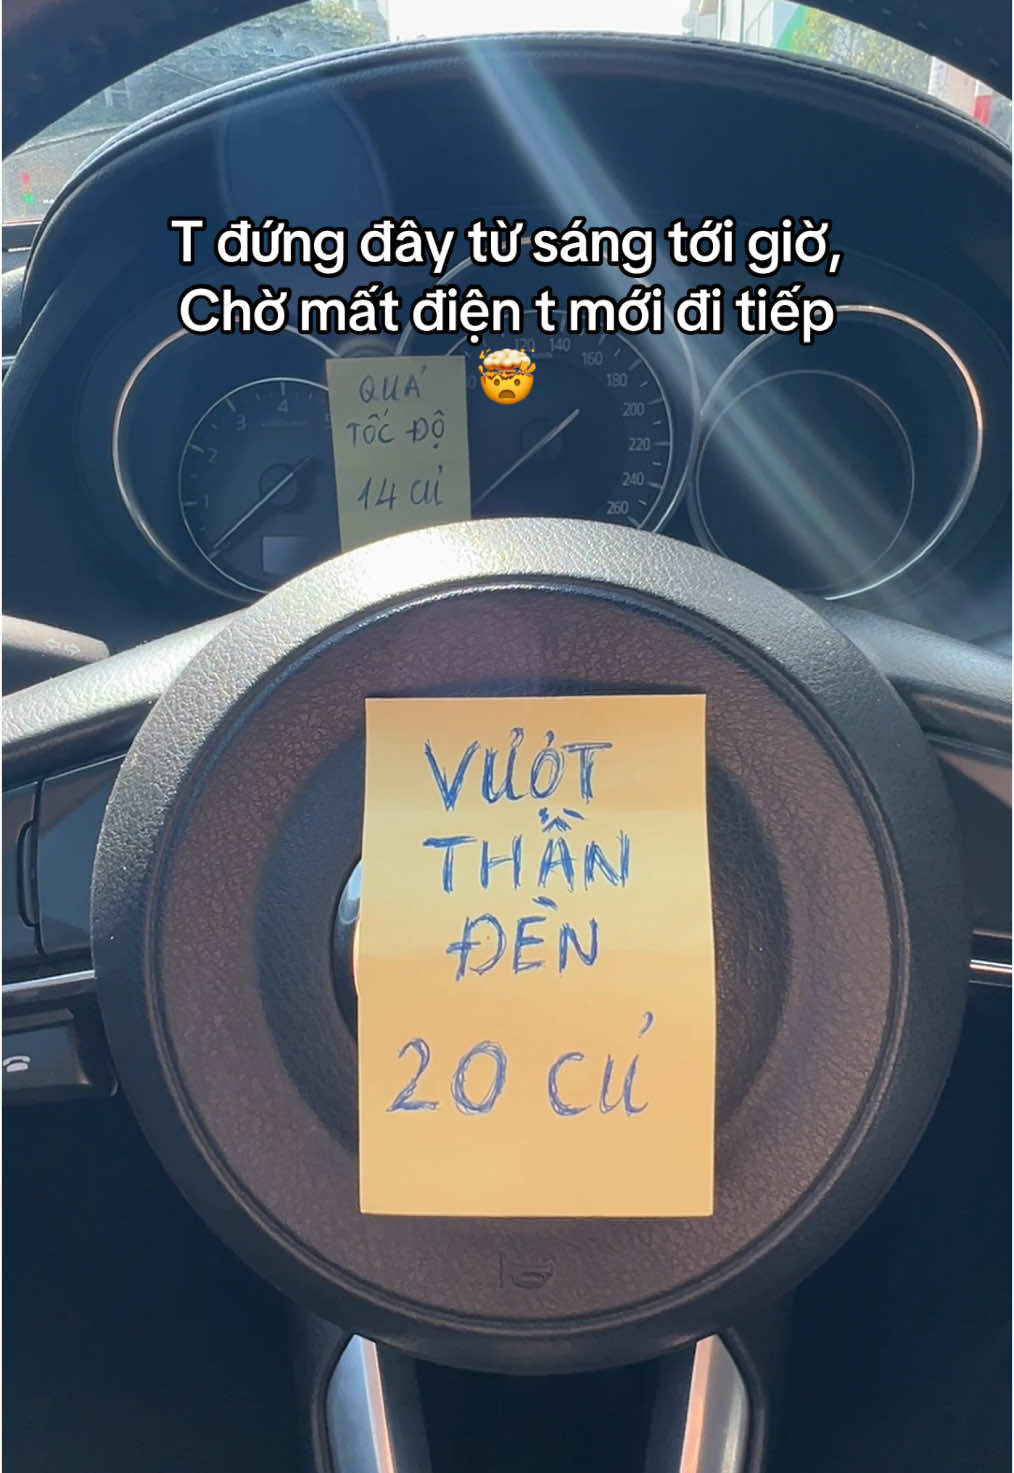 T đứng đây từ sáng tới giờ,
Chờ mất điện t mới đi tiếp
🤯
120 140
160
180
200
220
240
260
4
3
2
1
QUÁ
TỐC ĐỘ
14 CỦ
VƯỢT
THẦN
ĐÈN
20 CỦ